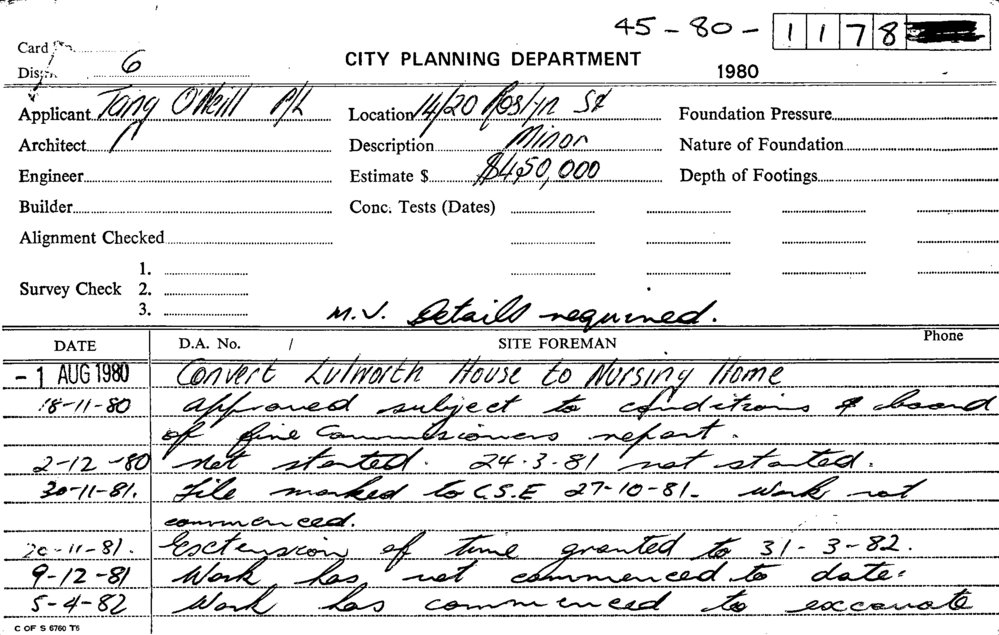 45-80-1178
Card No.
CITY PLANNING DEPARTMENT
1980
6
Applicant Tang O'Neill P/L Location 14/20 Roslyn St Foundation Pressure
Architect Description Minor Nature of Foundation
Engineer Estimate $ $450,000 Depth of Footings
Builder Conc. Tests (Dates)
Alignment Checked
1.
Survey Check 2.
3.
M.V. Details required.
DATE D.A. No. / SITE FOREMAN Phone
-1 AUG 1980 Convert Lulworth House to Nursing Home
18-11-80 approved subject to conditions & board
of fire Commissioners report.
2-12-80 Not started. 24.3.81 not started.
30-11-81. File marked to C.S.E 27-10-81. Work not
commenced.
-11-81. Exctension of time granted to 31-3-82.
9-12-81 Work has not commenced to date.
5-4-82 Work has commenced to excavate
C OF S 6760 T6